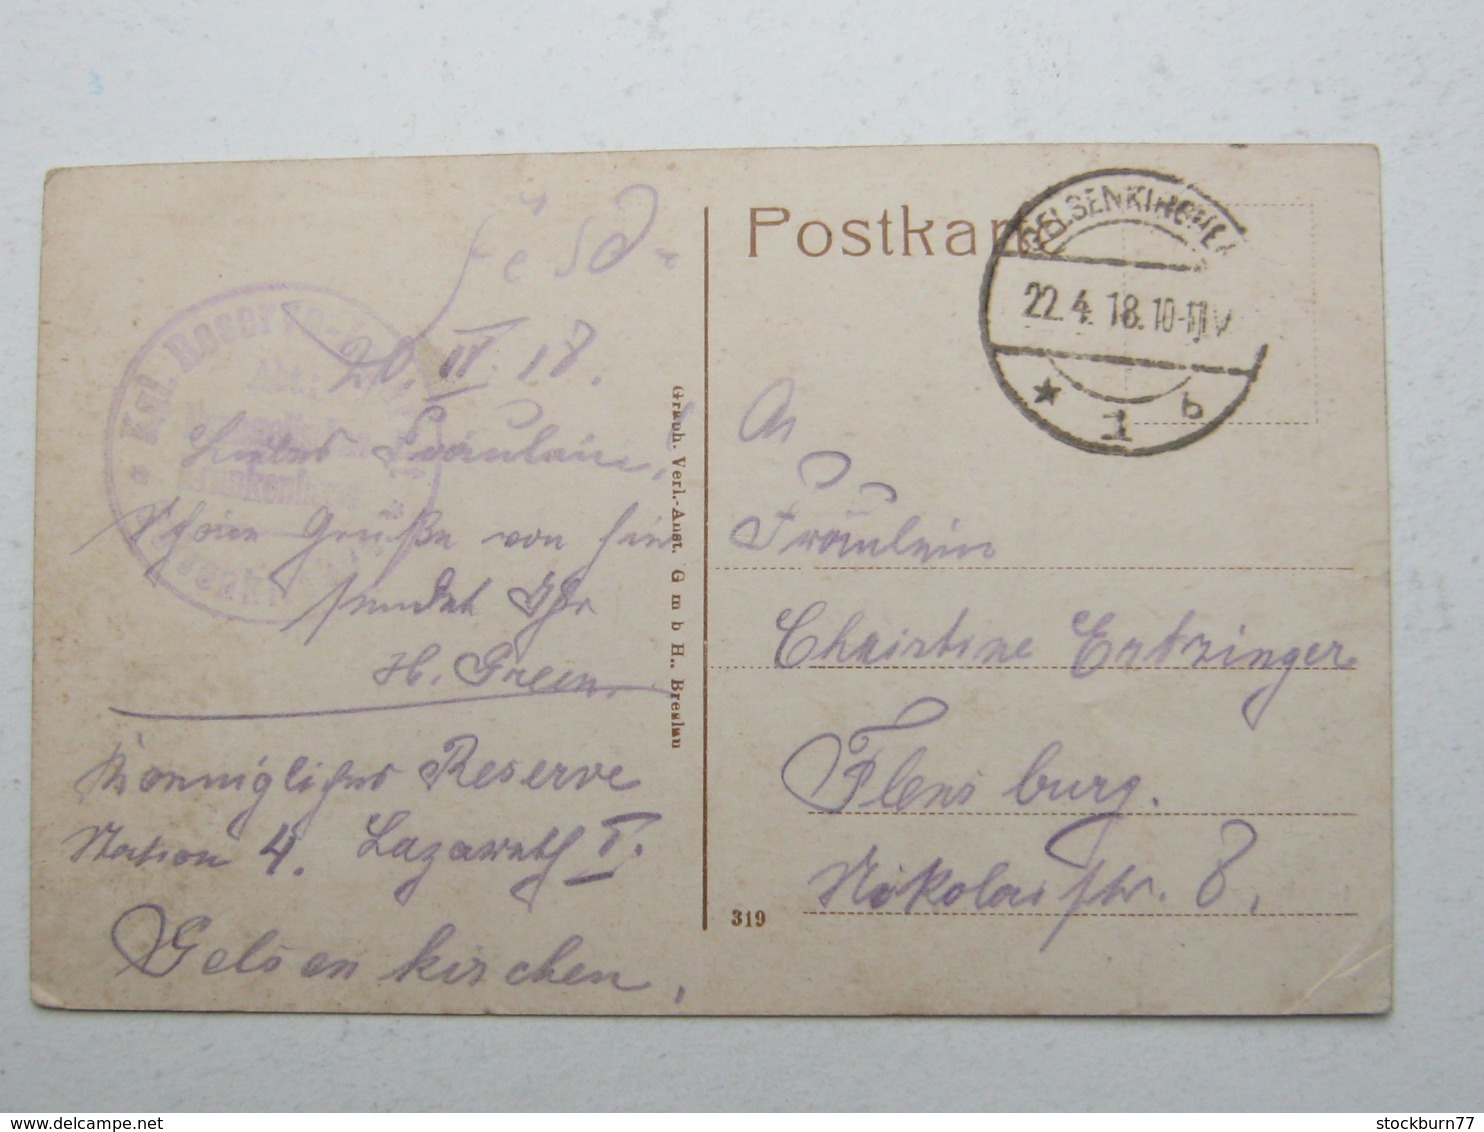 Feld-
Postkarte
GELSENKIRCHEN
22.4.18.10-11V
* 1 b
Kgl. Reserve
Abt.:
Krankenhaus
20. IV. 18.
Liebes Fräulein,
Schöne Grüße von hier
sendet Ihr
H. Green.
Königliches Reserve
Station 4. Lazareth I.
Gelsenkirchen,
Graph. Verl.-Anst. G m b H., Breslau
319
An
Fräulein
Christine Ertzinger
Flensburg.
Nikolaistr. 8.
stockburn77